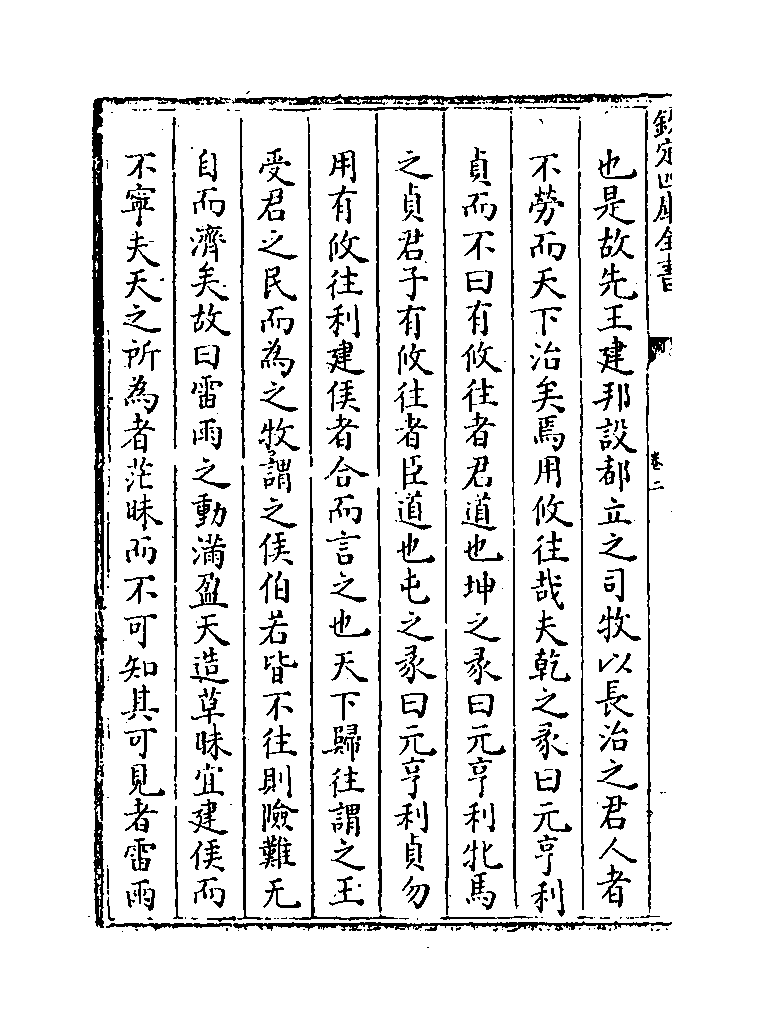 欽定四庫全書
卷二
也是故先王建邦設都立之司牧以長治之君人者
不勞而天下治矣焉用攸往哉夫乾之彖曰元亨利
貞而不曰有攸往者君道也坤之彖曰元亨利牝馬
之貞君子有攸往者臣道也屯之彖曰元亨利貞勿
用有攸往利建侯者合而言之也天下歸往謂之王
受君之民而為之牧謂之侯伯若皆不往則險難无
自而濟矣故曰雷雨之動滿盈天造草昧宜建侯而
不寧夫天之所為者茫昧而不可知其可見者雷雨